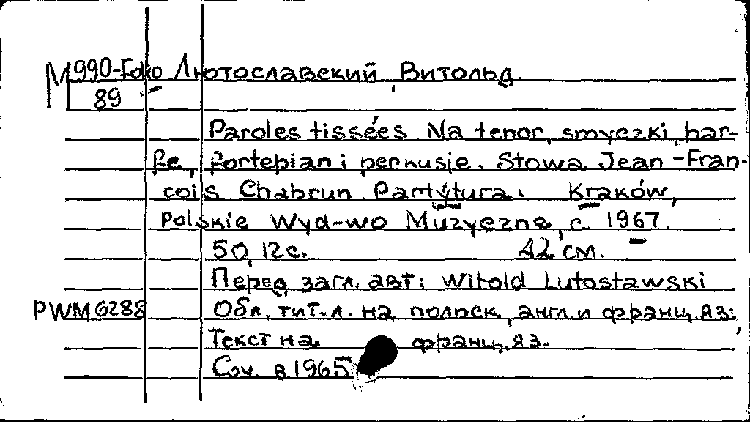 М 990-Foko Лютославский, Витольд.
89
Paroles tissées Na tenor, smyczki, har-
fę, fortepian i perkusję. Słowa Jean-Fran-
çois Chabrun Partytura. Kraków,
Polskie Wyd-wo Muzyczne, c. 1967.
50, 12с. 42 см.
Перед загл. авт: Witold Lutosławski
PWM 6288 Обл, тит.л. на польск, англ. и франц. яз;
Текст на франц. яз.
Соч. в 1965